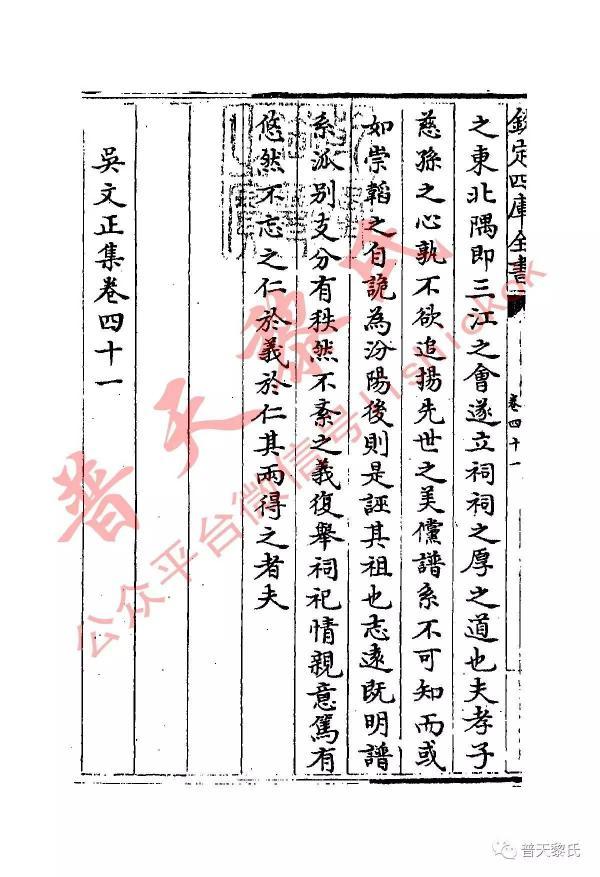 欽定四庫全書
卷四十一
之東北隅即三江之會遂立祠祠之厚之道也夫孝子
慈孫之心孰不欲追揚先世之美儻譜系不可知而或
如崇韜之自詭為汾陽後則是誣其祖也志遠既明譜
系派别支分有秩然不紊之義復舉祠祀情親意篤有
悠然不忘之仁於義於仁其兩得之者夫
吳文正集卷四十一
普天黎氏
公众平台微信号lishiokok
普天黎氏